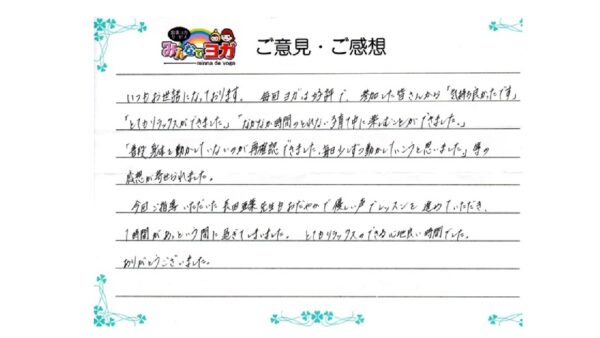 みんなでヨガ
minna de yoga
ご意見・ご感想
いつもお世話になっております。 毎回ヨガは好評で、参加した皆さんから「気持ち良かったです」
「とてもリラックスができました。」「なかなか時間のとれない子育て中に楽しむことができました。」
「普段身体を動かしていないのが再確認できました。毎日少しずつ動かしていこうと思いました」等の
感想が寄せられました。
今回ご指導いただいた長田 先生もおだやかで優しい声でレッスンを進めていただき、
1時間があっという間に過ぎてしまいました。 とてもリラックスのできる心地良い時間でした。
ありがとうございました。